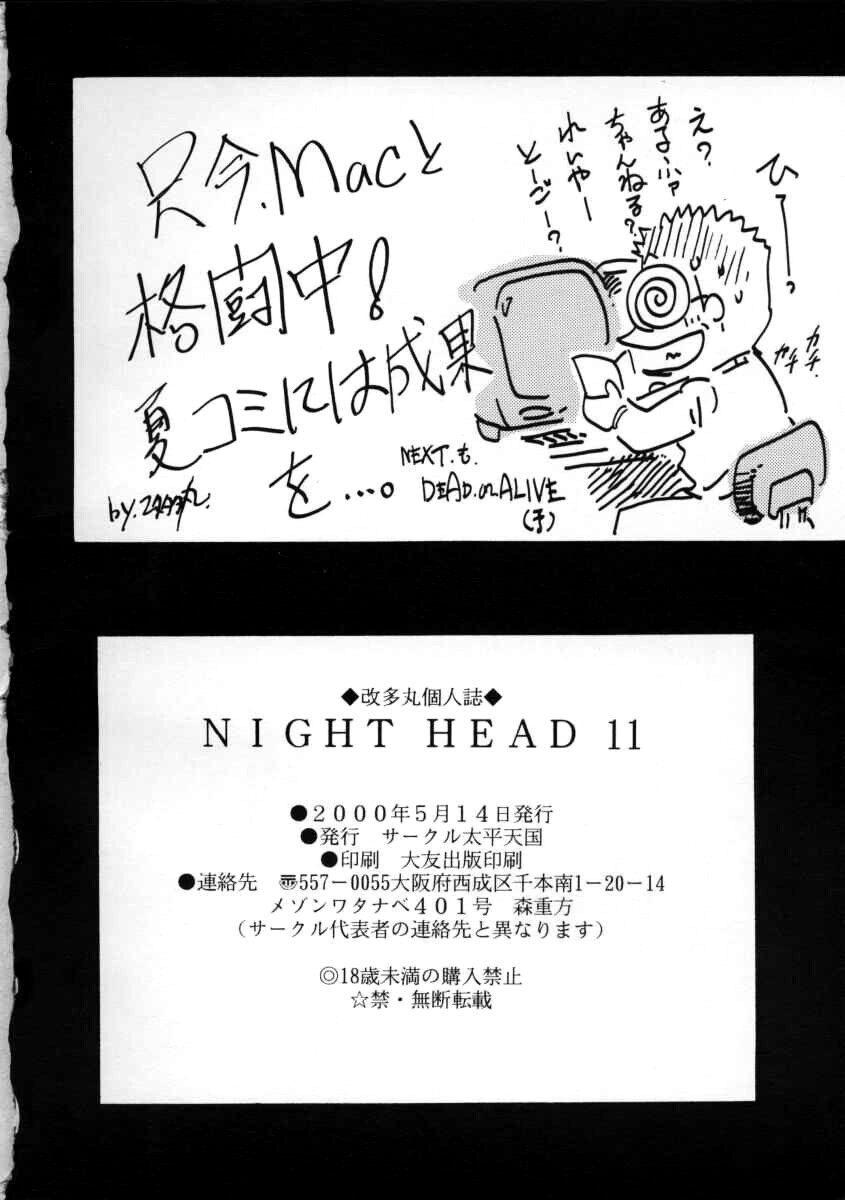 只今.Macと
格闘中!
夏コミには成果
を…。
え?
あるふァ
ちゃんねる?
れいやー
とーごー?
ひーっ
カチ
カチ.
NEXT.も.
DEAD.or.ALIVE
(予)
◆改多丸個人誌◆
NIGHT HEAD 11
●2000年5月14日発行
●発行 サークル太平天国
●印刷 大友出版印刷
●連絡先 〠557-0055大阪府西成区千本南1-20-14
メゾンワタナベ401号 森重方
(サークル代表者の連絡先と異なります)
◎18歳未満の購入禁止
☆禁・無断転載